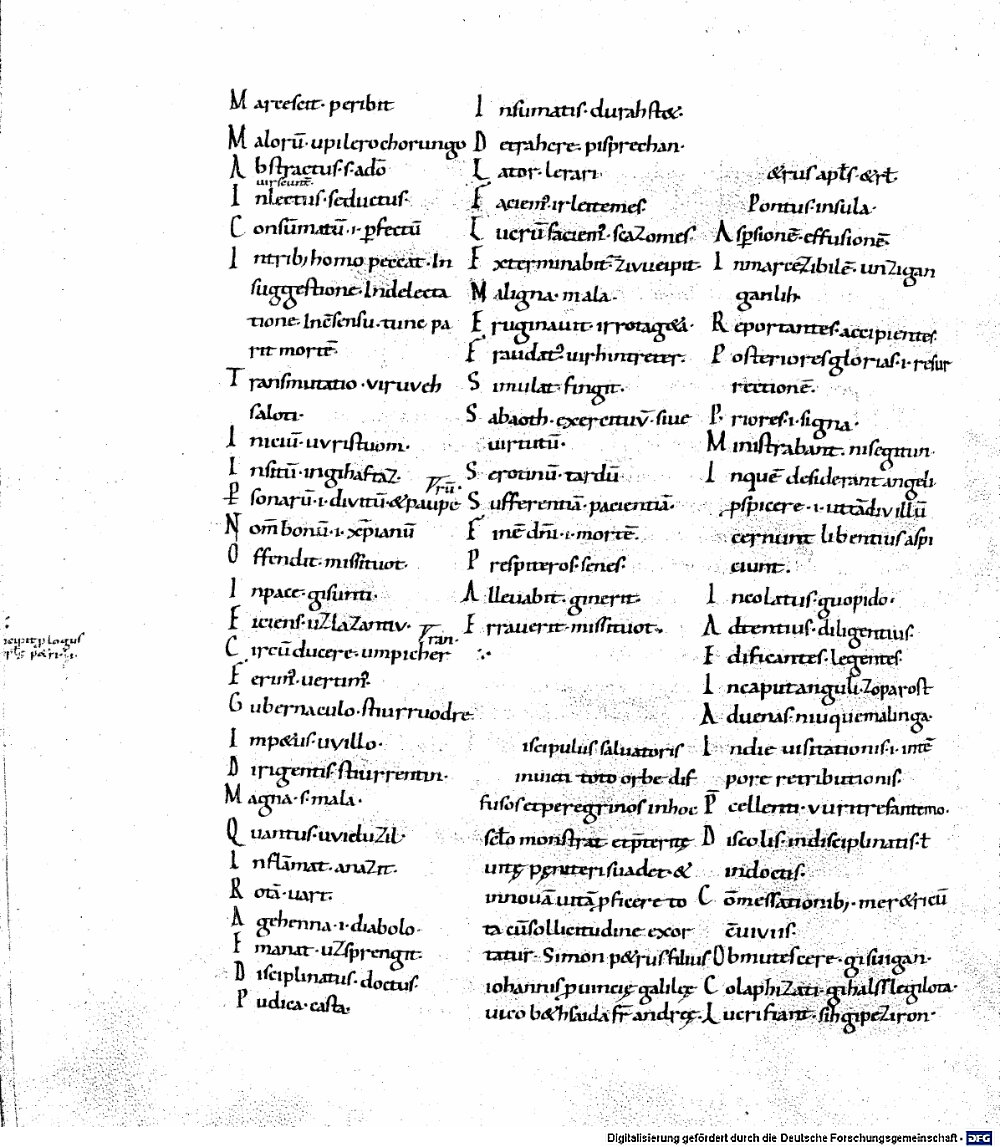 Marcescit · peribit
Malorū · upilero chorungo
Abstractus · s · ado
uirseunt
Inlectus · seductus ·
Consūmatū · i · pfectū
Intrib; homo peccat · In
suggestione · Indelecta
tione · Incsensu · tunc pa
rit mortē ·
Transmutatio · viruveh
saloti ·
Iniciū · uvristuom ·
Insitū · ingihaftaz ·
rū ·
Psonarū · i · divitū · & paupe
Nom̄ bonū · i · xpianū
Offendit · missituot ·
Inpace · gisunti ·
Eiciens · uzlazantiv ·
ran ·
Circūducere · umpicher
Ferim² · uertim² ·
Gubernaculo · sturruodre ·
Imp&us · uvillo ·
Dirigentis · sturrentin ·
Magna · s · mala ·
Quantus · uvieduzil ·
Inflāmat · anazit ·
Rotā · uart ·
Agehenna · i · diabolo ·
Emanat · uzsprengit ·
Disciplinatus · doctus ·
Pudica · casta ·
Insumatis · durahst&·
Detrahere · pisprechan ·
Lator · lerari
Faciem² · irleitemes ·
Lucrū faciem² · scazomes ·
Exterminabit · zivueipit ·
Maligna · mala ·
Eruginauit · irrotag&a ·
Fraudat² · uirhintreter ·
Simulat · fingit ·
Sabaoth · exercituū · siue
uirtutū ·
Serotinū · tardū
Sufferentiā · pacientiā ·
Finē dn̄i · i · mortē ·
Prespiteros · senes ·
Alleuabit · ginerit ·
Errauerit · missituot ·
iscipulus saluatoris
inuicti toto orbe dif
fusos et peregrinos inhoc
sclo monstrat et pterite
uite peniteri suadet &
innouā uitā pficere to
ta cū sollicitudine exor
tatur · Simon p&rus filius
iohannis puincie galilee
uico b&hsaida fr̄ andree ·
&rus apls · &rl
Pontus · insula ·
Aspsionē · effusionē ·
Inmarcezibilē · unzigan
ganlih ·
Reportantes · accipientes ·
Posteriores glorias · i · resur
rectionē ·
Priores · i · signa ·
Ministrabant · nisegitun ·
Inquē desiderant angeli
pspicere · i · uttādiv illū
cernunt libentius aspi
ciunt ·
Incolatus · guopido ·
Adtentius · diligentius ·
Edificantes · legentes ·
Incaput anguli · zoparost
Aduenas · niuquemalinga ·
Indie uisitationis · i · intē
pore retributionis ·
Pcellenti · vurtresantemo ·
Discolis · indisciplinatis · t
indoctis ·
Comessationib; · mer&ricū
cuiviis ·
Obmutescere · gisuigan ·
Colaphizati · gihalslegilota ·
Lucrifiant · sih gipeziron ·
Digitalisierung gefördert durch die Deutsche Forschungsgemeinschaft · DFG